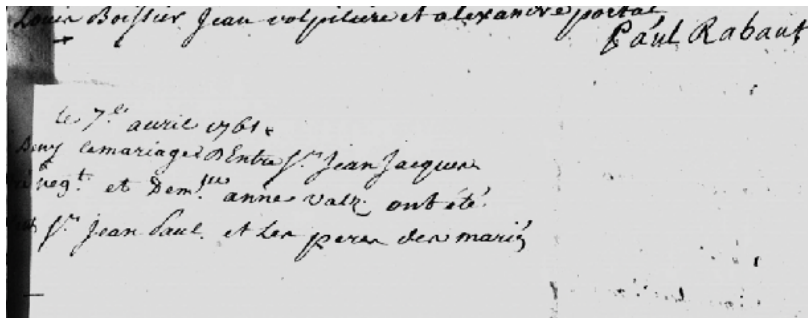 Louis Boissier Jean volpiliere et alexandre portal
Paul Rabaut
le 7e. avril 1761.
Beny le mariage D'Entre Sr. Jean Jacques
negt. et Demlle anne valz ont été
Sr. Jean Paul. et Les peres des mariés